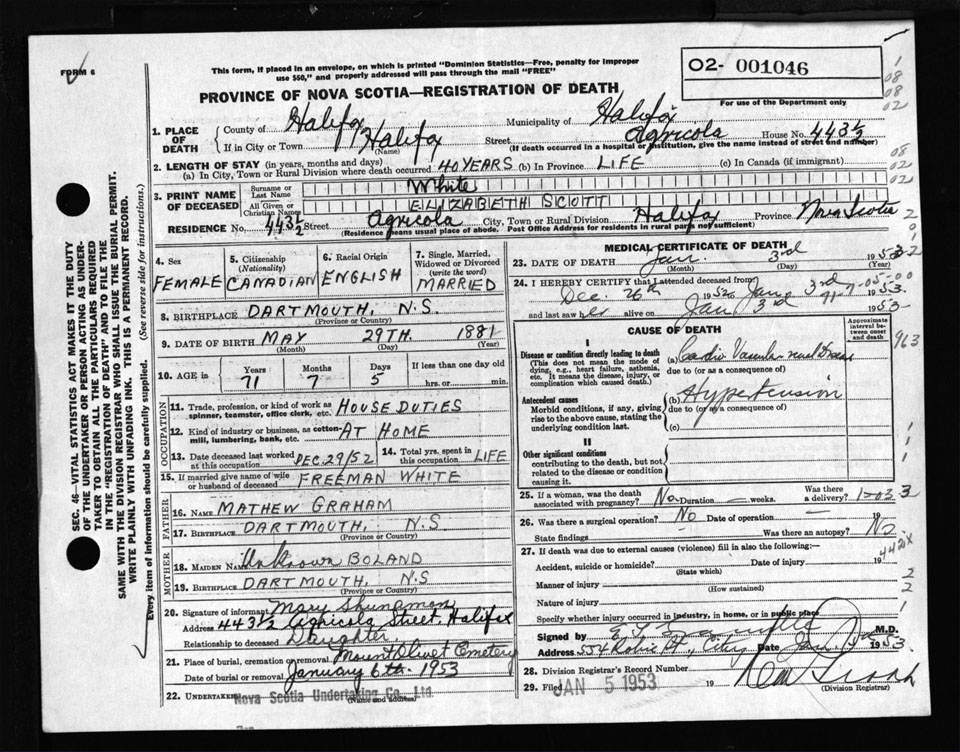 FORM 6
This form, if placed in an envelope, on which is printed "Dominion Statistics—Free, penalty for improper
use $50," and properly addressed will pass through the mail "FREE"
O2- 001046
For use of the Department only
PROVINCE OF NOVA SCOTIA—REGISTRATION OF DEATH
1. PLACE OF DEATH
County of Halifax Municipality of Halifax
If in City or Town Halifax (Name) Street Agricola House No. 443½
(If death occurred in a hospital or institution, give the name instead of street and number)
2. LENGTH OF STAY (in years, months and days)
(a) In City, Town or Rural Division where death occurred 40 YEARS (b) In Province LIFE (c) In Canada (if immigrant)
3. PRINT NAME OF DECEASED
Surname or Last Name White
All Given or Christian Names ELIZABETH SCOTT
RESIDENCE No. 443½ Street Agricola City, Town or Rural Division Halifax Province Nova Scotia
(Residence means usual place of abode. Post Office Address for residents in rural parts not sufficient)
4. Sex FEMALE
5. Citizenship (Nationality) CANADIAN
6. Racial Origin ENGLISH
7. Single, Married, Widowed or Divorced (write the word) MARRIED
8. BIRTHPLACE DARTMOUTH, N.S.
(Province or Country)
9. DATE OF BIRTH MAY 29TH. 1881
(Month) (Day) (Year)
10. AGE in Years 71 Months 7 Days 5 If less than one day old hrs. or min.
OCCUPATION
11. Trade, profession, or kind of work as spinner, teamster, office clerk, etc. HOUSE DUTIES
12. Kind of industry or business, as cotton-mill, lumbering, bank, etc. AT HOME
13. Date deceased last worked at this occupation DEC. 29/52
14. Total yrs. spent in this occupation LIFE
15. If married give name of wife or husband of deceased FREEMAN WHITE
FATHER
16. NAME MATHEW GRAHAM
17. BIRTHPLACE DARTMOUTH, N.S
(Province or Country)
MOTHER
18. MAIDEN NAME Unknown BOLAND
19. BIRTHPLACE DARTMOUTH, N.S
(Province or Country)
20. Signature of informant Mary
Address 443½ Agricola Street, Halifax
Relationship to deceased Daughter.
21. Place of burial, cremation or removal Mount Olivet Cemetery
Date of burial or removal January 6th. 1953
22. UNDERTAKER Nova Scotia Undertaking Co., Ltd.
(Name and address)
MEDICAL CERTIFICATE OF DEATH
23. DATE OF DEATH Jan. 3rd 1953
(Month) (Day)
24. I HEREBY CERTIFY that I attended deceased from
Dec. 26th 1952 Jan 3rd 1953.
and last saw her alive on Jan 3rd 1953
CAUSE OF DEATH
Approximate interval between onset and death
I
Disease or condition directly leading to death
(This does not mean the mode of dying, e.g., heart failure, asthenia, etc. It means the disease, injury, or complication which caused death.)
(a) Cardio Vascular renal Disease
due to (or as a consequence of)
Antecedent causes
Morbid conditions, if any, giving rise to the above cause, stating the underlying condition last.
(b) Hypertension
due to (or as a consequence of)
(c)
II
Other significant conditions
contributing to the death, but not related to the disease or condition causing it.
25. If a woman, was the death associated with pregnancy? No Duration — weeks. Was there a delivery?
26. Was there a surgical operation? No Date of operation — 19
State findings — Was there an autopsy? No
27. If death was due to external causes (violence) fill in also the following:—
Accident, suicide or homicide? Date of injury 19
(State which)
Manner of injury
(How sustained)
Nature of injury
Specify whether injury occurred in industry, in home, or in public place
Signed by M.D.
Address 554 Robie St., City Date Jan. 1953
28. Division Registrar's Record Number
29. Filed JAN 5 1953 19
(Division Registrar)
SEC. 46—VITAL STATISTICS ACT MAKES IT THE DUTY
OF THE UNDERTAKER OR PERSON ACTING AS UNDER-
TAKER TO OBTAIN ALL THE PARTICULARS REQUIRED
IN THE "REGISTRATION OF DEATH" AND TO FILE THE
SAME WITH THE DIVISION REGISTRAR WHO SHALL ISSUE THE BURIAL PERMIT.
WRITE PLAINLY WITH UNFADING INK. THIS IS A PERMANENT RECORD.
Every item of information should be carefully supplied. (See reverse side for instructions.)